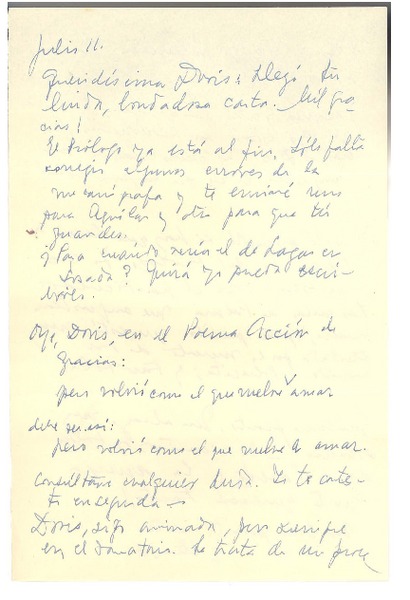 Julio 11.
Queridísima Doris: Llegó tu
linda, bondadosa carta. Mil gra-
cias!
El Prólogo ya está al fin, sólo falta
corregir algunos errores de la
mecanógrafa y te enviaré uno
para Aguilar y otro para que tú
guardes.
¿Para cuándo sería el de Lagar en
Losada? Quizá yo pueda escri-
birles.
Oye, Doris, en el Poema Acción de
Gracias:
pero volvió como el que vuelve a amar
debe ser así:
pero volvió como el que vuelve de amar.
Consúltame cualquier duda. Yo te contes-
to enseguida —
Doris, sigo animada, pero siempre
en el Sanatorio. Se trata de un proce